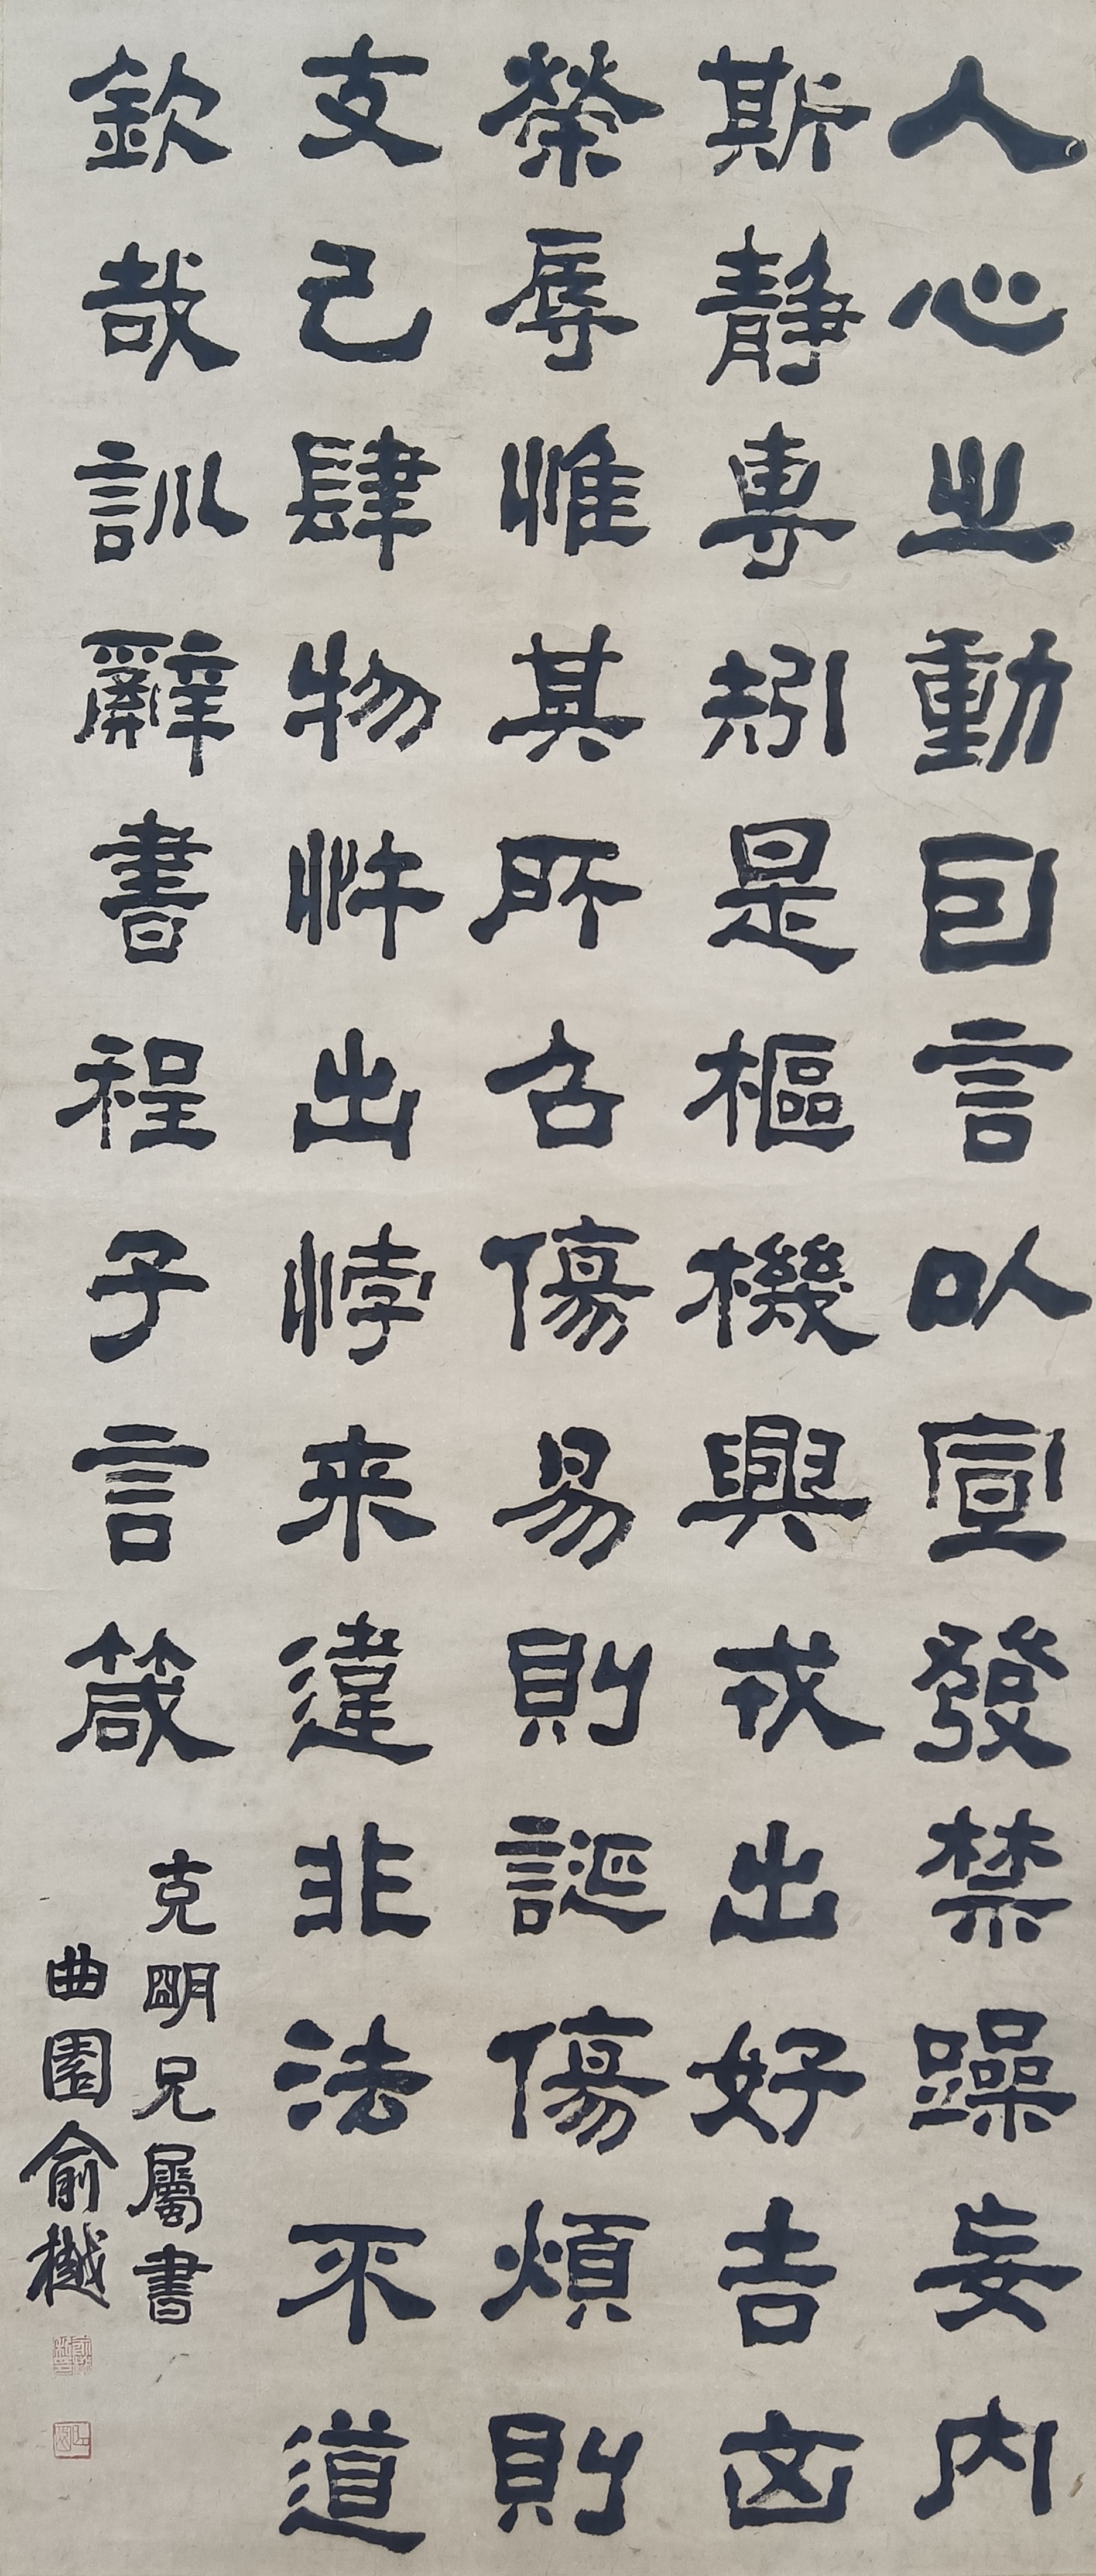 人心之動囙言以宣發禁躁妄内
斯靜專矧是樞機興戎出好吉凶
榮辱惟其所召傷易則誕傷煩則
支己肆物忤出悖来違非法不道
欽哉訓辭書程子言箴
克明兄屬書
曲園俞樾